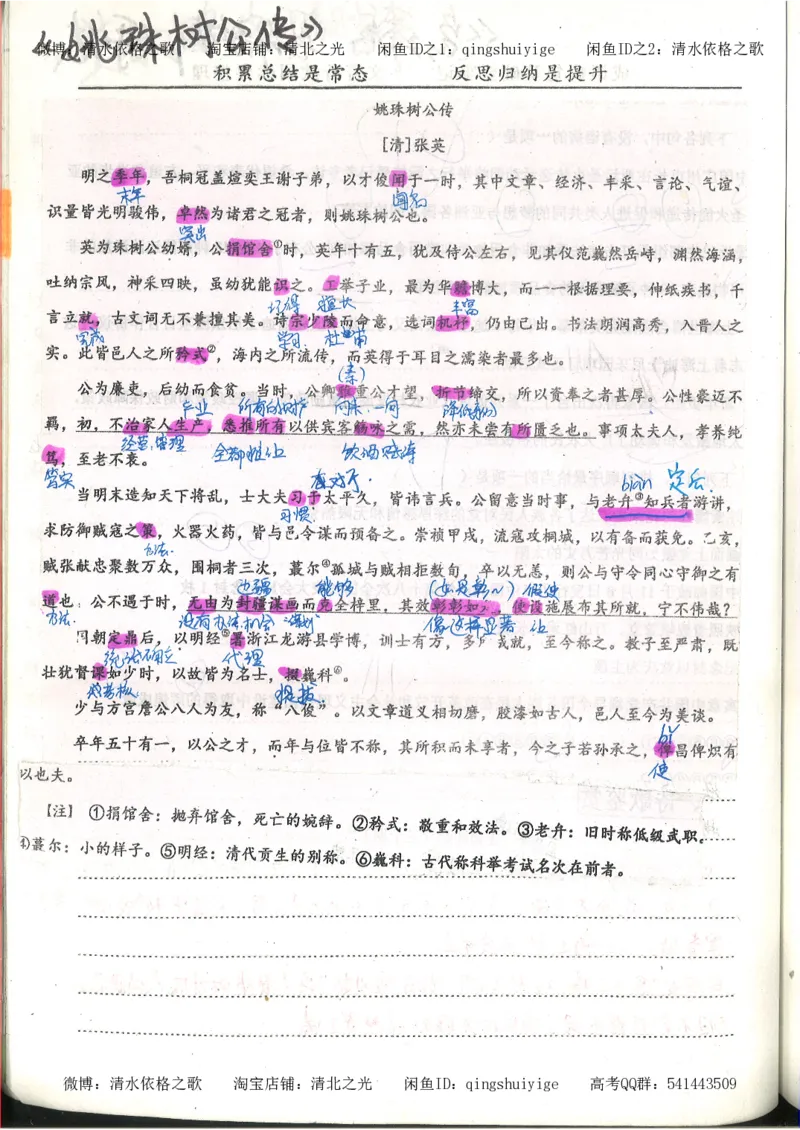 《姚珠树公传》
微博：清水依格之歌 淘宝店铺：清北之光 闲鱼ID之1：qingshuiyige 闲鱼ID之2：清水依格之歌
积累总结是常态 反思归纳是提升
姚珠树公传
[清]张英
明之季年，吾桐冠盖煊奕王谢子弟，以才俊闻于一时，其中文章、经济、丰采、言论、气谊、
末年 闻名
识量皆光明骏伟，卓然为诸君之冠者，则姚珠树公也。
突出
英为珠树公幼壻，公捐馆舍①时，英年十有五，犹及侍公左右，见其仪范巍然岳峙，渊然海涵，
吐纳宗风，神采四映，虽幼犹能识之。工举子业，最为华赡博大，而一一根据理要，伸纸疾书，千
记得 擅长 丰富
言立就，古文词无不兼擅其美。诗宗少陵而命意，选词机杼，仍由己出。书法朗润高秀，入晋人之
完成 学习 杜甫
实。此皆邑人之所矜式②，海内之所流传，而英得于耳目之濡染者最多也。
公为廉吏。后幼而食贫。当时，公卿雅重公才望，折节缔交，所以资奉之者甚厚。公性豪迈不
产业 所有的财产 向来 降低身份
羁，初，不治家人生产，悉推所有以供宾客觞咏之需，然亦未尝有所匮乏也。事项太夫人，孝养纯
经营，管理 全部 推让 饮酒赋诗
笃，至老不衰。
笃实
当明末造知天下将乱，士大夫习于太平久，皆讳言兵。公留意当时事，与老弁③知兵者游讲，
习惯 biàn
求防御贼寇之策，火器火药，皆与邑令谋而预备之。崇祯甲戌，流寇攻桐城，以有备而获免。乙亥，
办法
贼张献忠聚数万众，围桐者三次，蕞尔④孤城与贼相拒数旬，卒以无恙，则公与守令同心守御之有
能够 假使
道也。公不遇于时，无由为封疆谋画而克全梓里，其效彰彰如是，使设施展布其所就，宁不伟哉？
方法 没有办法 像这样显著 让
同朝定鼎后，以明经⑤署浙江龙游县学博，训士有方，多所成就，至今称之。教子至严肃，既
代理
壮犹督课如少时，以故皆为名士，掇巍科⑥。
少与方宫詹公八人为友，称“八俊”。以文章道义相切磨，胶漆如古人，邑人至今为美谈。
卒年五十有一，以公之才，而年与位皆不称，其所积而未享者，今之子若孙承之，俾昌俾炽有
bǐ
使
以也夫。
【注】 ①捐馆舍：抛弃馆舍，死亡的婉辞。②矜式：敬重和效法。③老弁：旧时称低级武职。
④蕞尔：小的样子。⑤明经：清代贡生的别称。⑥巍科：古代称科举考试名次在前者。
微博：清水依格之歌 淘宝店铺：清北之光 闲鱼ID：qingshuiyige 高考QQ群：541443509